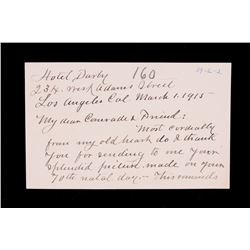 Hotel Darby 160 19-2-2
234 West Adams Street
Los Angeles Cal March 1. 1915-
My dear Comrade & Friend:
Most cordially
from my old heart do I thank
You for sending to me your
splendid picture made on your
70th natal day - This reminds